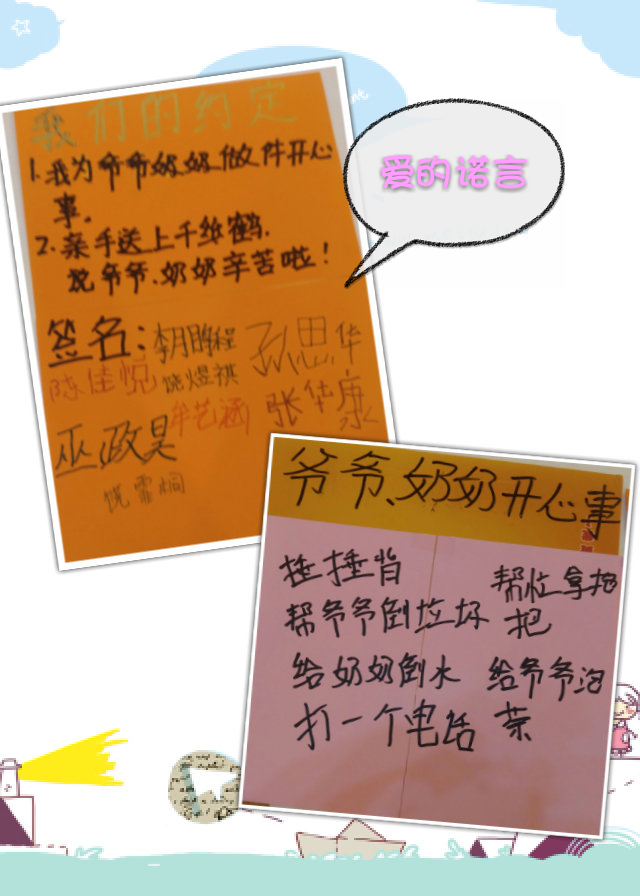 爱的诺言
我们的约定
1.我为爷爷奶奶做件开心
事。
2.亲手送上千纸鹤.
说爷爷、奶奶辛苦啦!
签名:李鹏程 孙思华
陈佳悦 饶煜祺
牟艺涵 张华康
巫政昊
饶霏桐
爷爷、奶奶开心事
捶捶背
帮爷爷倒垃圾
给奶奶倒水
打一个电话
帮忙拿拖
把
给爷爷泡
茶